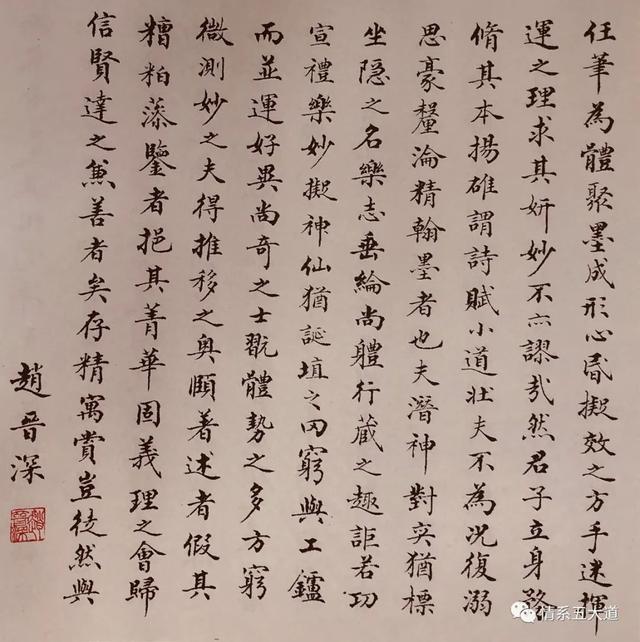 任筆為體聚墨成形心昏擬效之方手迷揮
運之理求其妍妙不亦謬哉然君子立身務
脩其本揚雄謂詩賦小道壯夫不為況復溺
思豪釐淪精翰墨者也夫潛神對奕猶標
坐隐之名樂志垂綸尚軆行藏之趣詎若功
宣禮樂妙擬神仙猶誕埴之罔窮與工鑪
而並運好異尚奇之士翫體勢之多方窮
微測妙之夫得推移之奧賾著述者假其
糟粕藻鑒者挹其菁華固義理之會歸
信賢達之兼善者矣存精寓賞豈徒然與
趙晉深
情系五大道